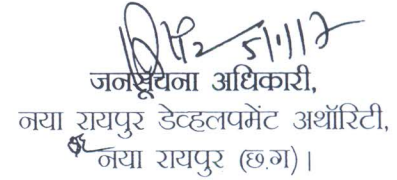 5/1/17
जनसूचना अधिकारी,
नया रायपुर डेव्हलपमेंट अथॉरिटी,
नया रायपुर (छ.ग)।